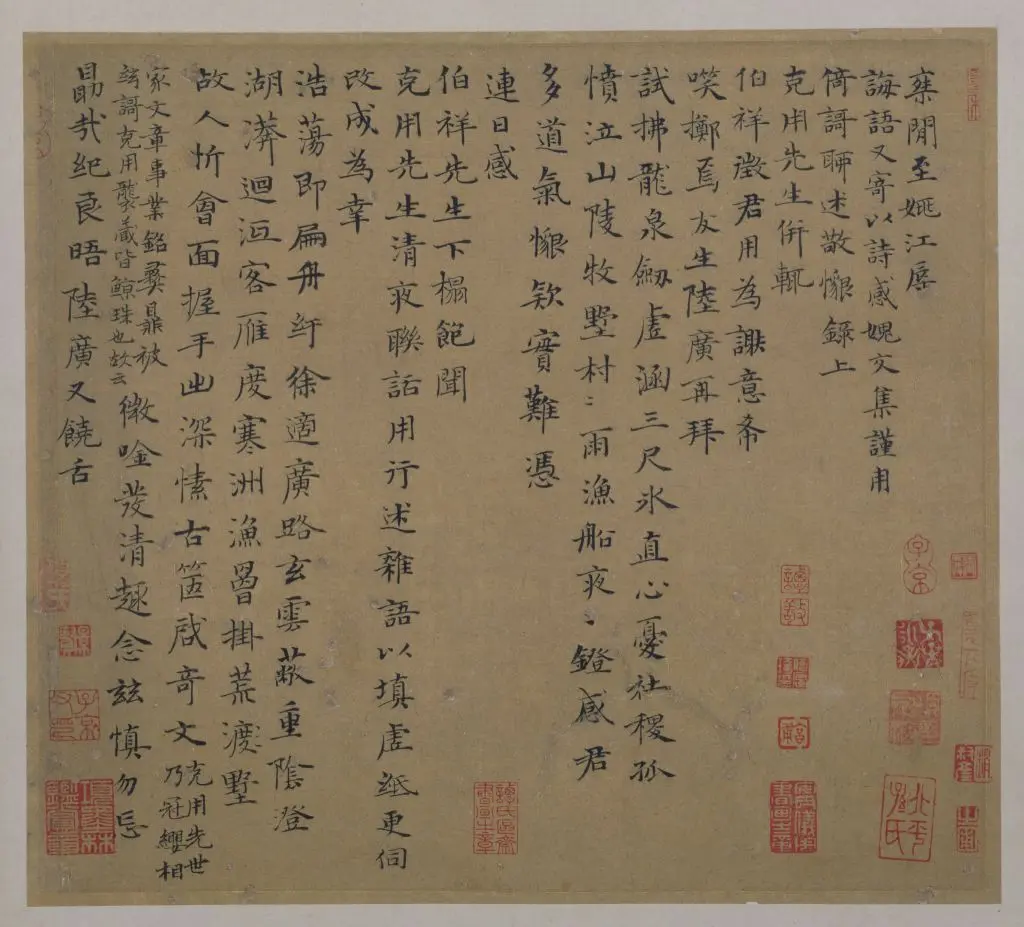 棻閒至姚江辱
誨語又寄以詩感媿交集謹用
倚謌聊述敬懷錄上
克用先生併輒
伯祥徵君用為謝意希
唉擲焉友生陸廣再拜
試拂龍泉劒虛涵三尺氷直心憂社稷孤
憤泣山陵牧墅村〻雨漁船夜〻鐙感君
多道氣懷欵實難憑
連日感
伯祥先生下榻飽聞
克用先生清夜聯話用行述雜語以填虛紙更伺
改成為幸
浩蕩即扁舟紆徐適廣路玄雲蔽重陰澄
湖漭迴洹客雁度寒洲漁罾掛荒渡墅
故人忻會面握手出深愫古箇啟竒文克用先世乃冠纓相
家文章事業銘彝鼎被
玆謌克用襲藏皆鯨珠也故云
微唫發清趣念玆慎勿忘
勗哉紀良晤陸廣又饒舌